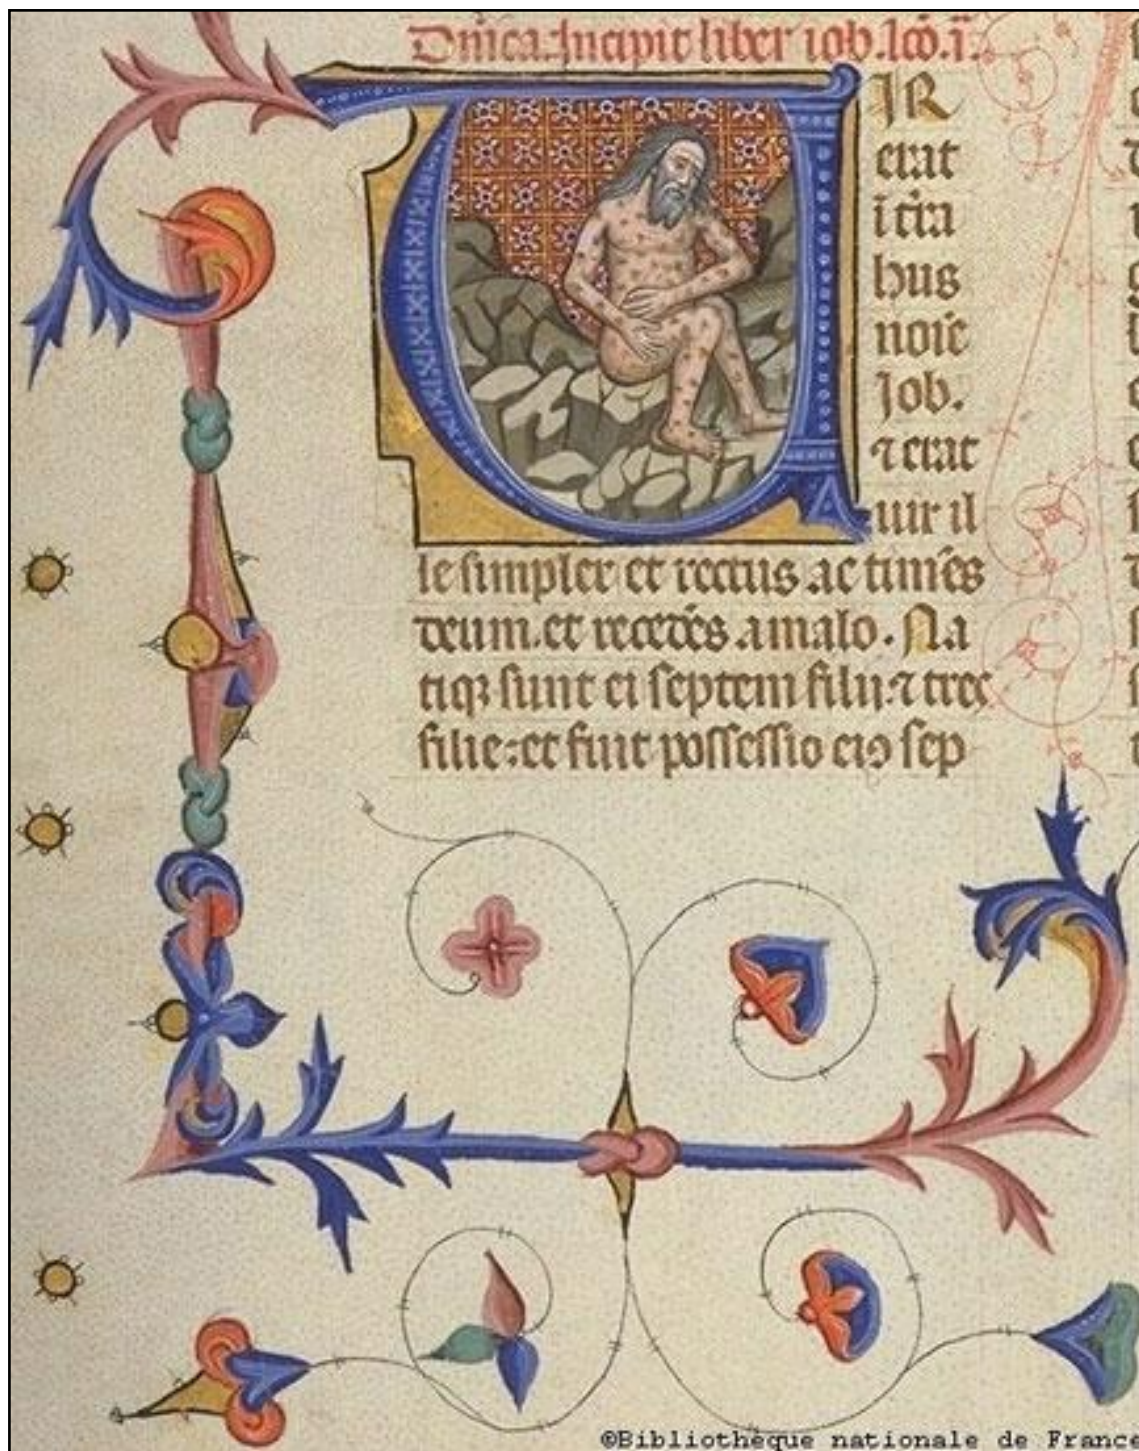 Dnica. Incipit liber iob. lcō. i.
VIR
erat
i t̄ra
hus
noīe
Job.
⁊ erat
uir il
le simplex et rectus. ac timēs
deum. et recedēs. a malo. Na
tiqꝫ sunt ei septem filii: ⁊ tres
filie: et fuit possessio eiꝰ sep
©Bibliothèque nationale de France